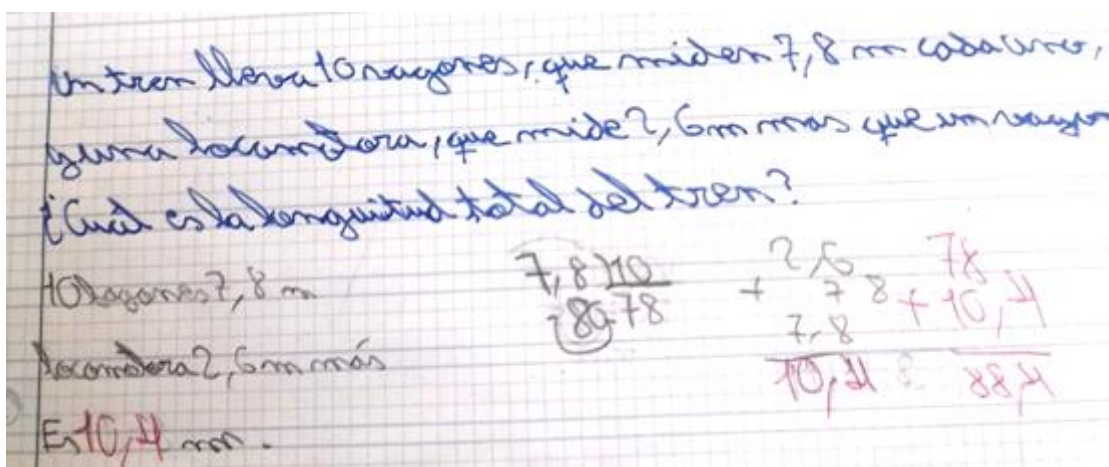 Un tren lleva 10 vagones, que miden 7,8 m cada uno,
y una locomotora, que mide 2,6 m mas que un vagon
¿Cuál es la longuitud total del tren?
10 vagones 7,8 m
locomotora 2,6 m más
Es 10,4 m.
7,8 10
80 78
2,6
+ 7 8
7,8
10,4
78
+ 10,4
88,4